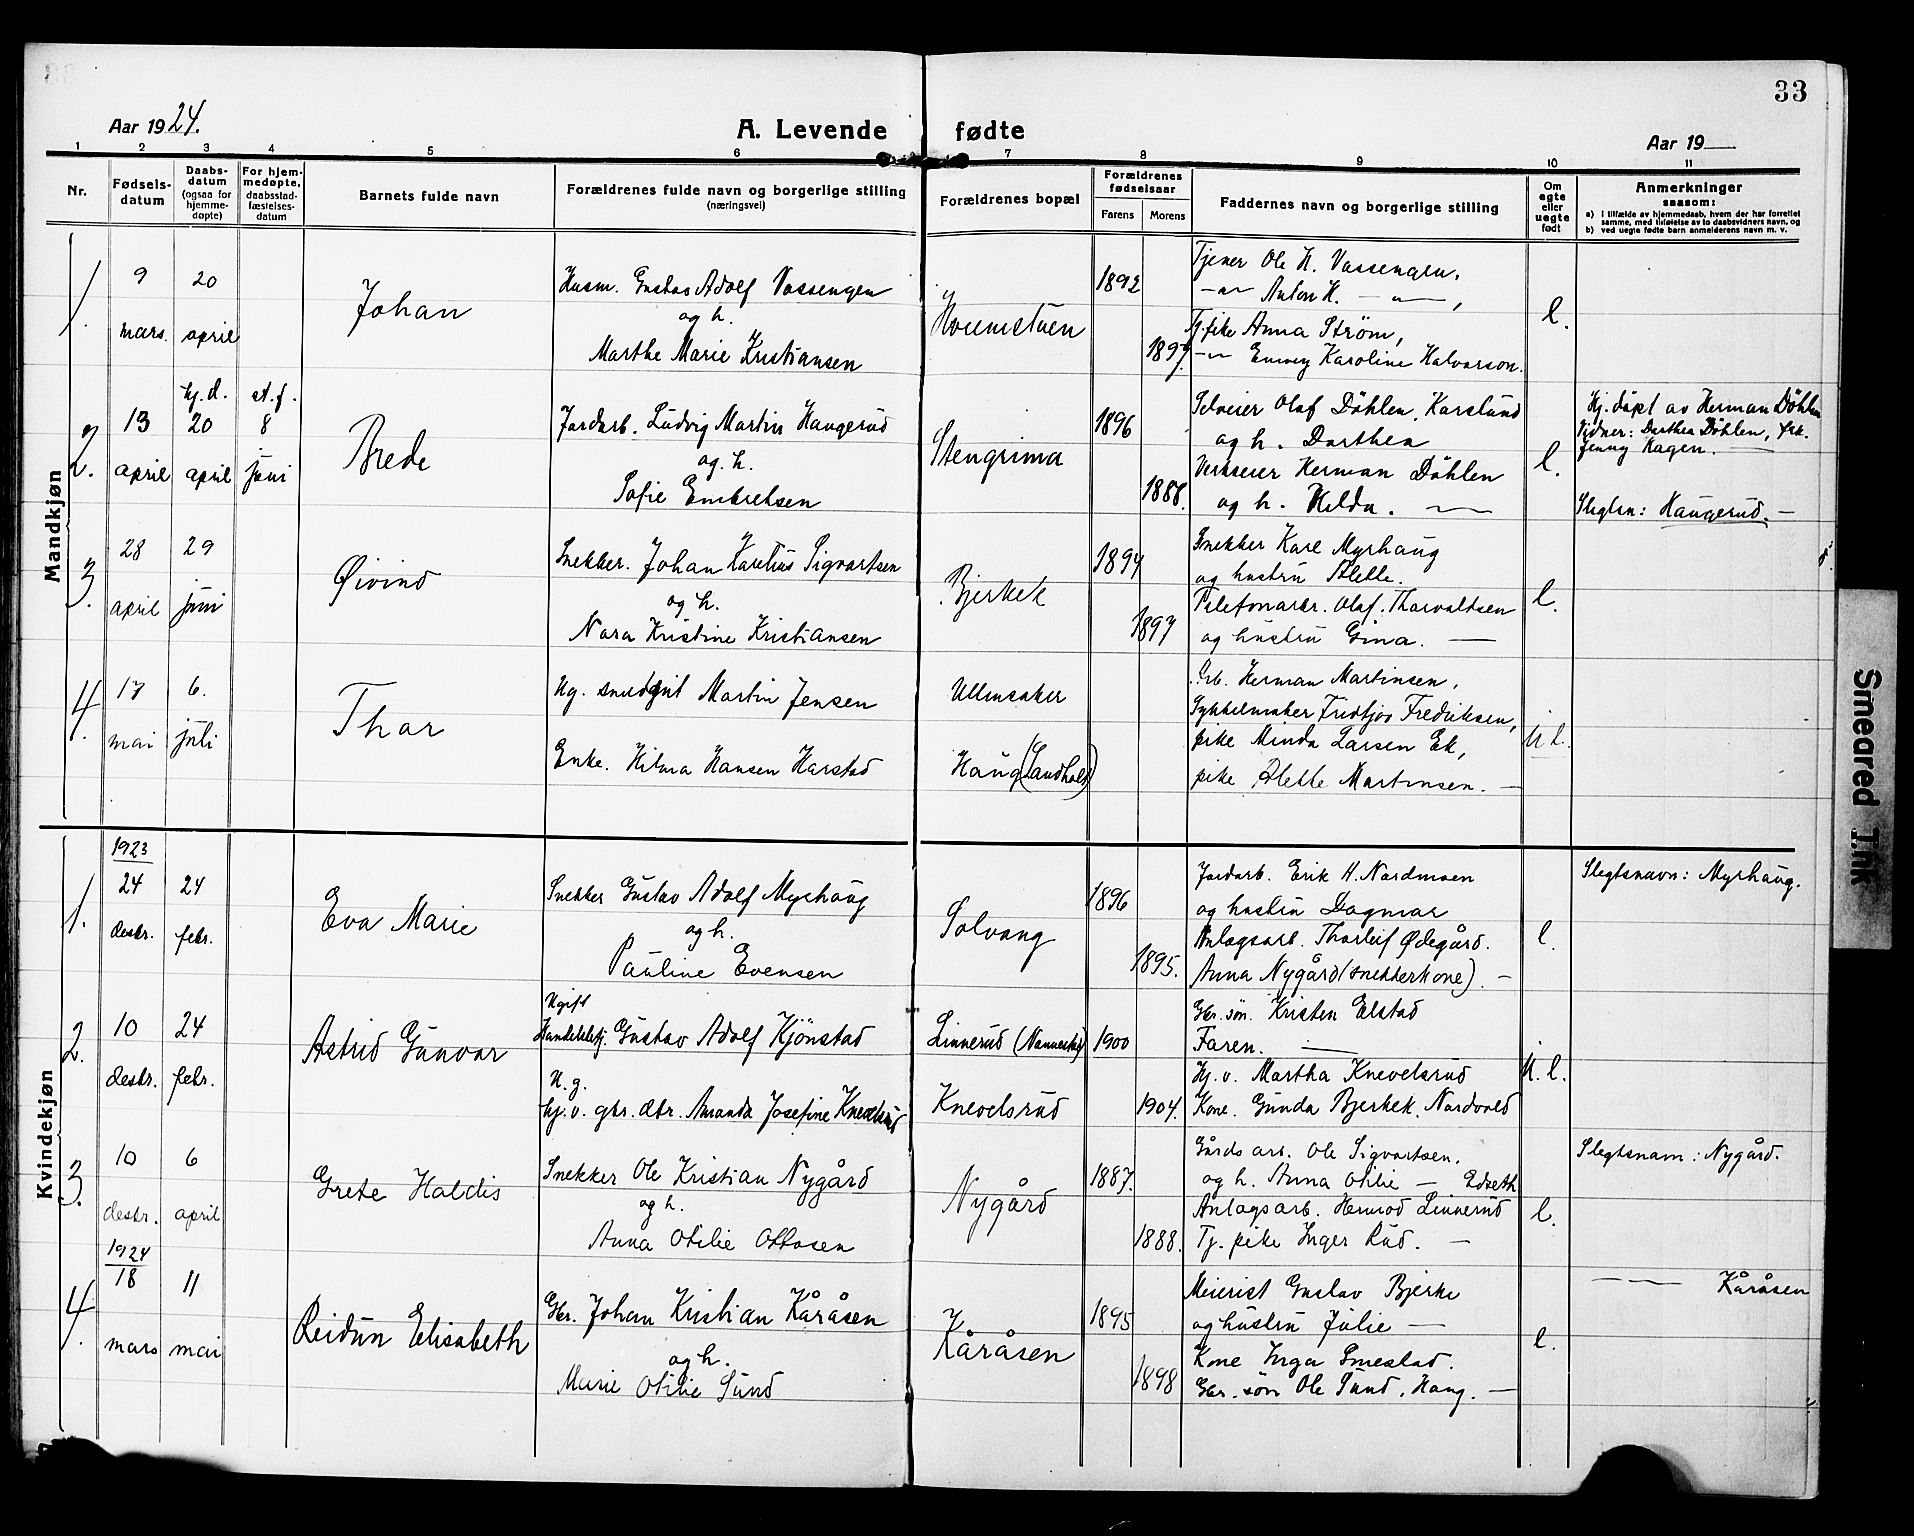 33
Aar 1924.
A. Levende fødte
Aar 19
1 2 3 4 5 6 7 8 9 10 11
Nr.
Fødsels-
datum
Daabs-
datum
(ogsaa for
hjemme-
døpte)
For hjem-
medøpte,
daabsstad-
fæstelses-
datum
Barnets fulde navn
Forældrenes fulde navn og borgerlige stilling
(næringsvei)
Forældrenes bopæl
Forældrenes
fødselsaar
Farens Morens
Faddernes navn og borgerlige stilling
Om
ægte
eller
uegte
født
Anmerkninger
saasom:
a) i tilfælde av hjemmedaab, hvem der har forrettet
samme, med tilføielse av to daabsvidners navn, og
b) ved uegte fødte barn anmelderens navn m. v.
Mandkjøn
1.
9
mars.
20
april
Johan
Husm. Gustav Adolf Vassengen
og h.
Marthe Marie Kristiansen
1892
1897.
Tjener Ole H. Vassengen,
Anton H.
Tj. pike Anna Strøm,
Emmy Karoline Halvorson.
l.
2.
13
april
hj. d.
20
april
st. f.
8
juni
Brede
Jordarb. Ludvig Martin Haugerud
og. h.
Sofie Embretsen
Stengrima
1896
1888.
Selveier Olaf Döhlen, Karslund
og h. Dorthea
Verkseier Herman Döhlen
og h. Hilda.
l.
Hj. döpt av Herman Döhlen
Vidner: Dorthea Döhlen, frk.
Jenny Hagen.
Slegtsn: Haugerud.
3.
28
april
29
juni
Øivind
Snekker. Johan Karelius Sigvartsen
og h.
Nora Kristine Kristiansen
Bjerkek
1894
1897
Snekker Karl Myrhaug
og hustru Alette.
Telefonarb. Olaf. Thorvaldsen
og hustru Gina.
l.
4.
17
mai
6.
juli
Thor
Ug. smedgut Martin Jensen
Enke. Hilma Hansen Harstad
Ullensaker
Haug (Sandholt)
Arb. Herman Martinsen,
Sykkelmaker Fridtjov Fredriksen,
pike Minda Larsen Ek,
pike Alette Martinsen.
U. l.
Kvindekjøn
1.
1923
24
desbr.
24
febr.
Eva Marie
Snekker Gustav Adolf Myrhaug
og h.
Pauline Evensen
Solvang
1896
1895.
Jordarb. Erik H. Nordmoen
og hustru Dagmar
Anlagsarb. Thorleif Ødegård.
Anna Nygård (snekkerkone).
l.
Slegtsnavn: Myrhaug.
2.
10
desbr.
24
febr.
Astrid Gunvor
Ugift
Handelsbetj. Gustav Adolf Kjönstad
U. g.
hj. v. gbr. dtr. Amanda Josefine Knevelsrud
Linnerud (Nannestad)
Knevelsrud
1900
1904.
Gbr. søn. Kristen Elstad
Faren.
Hj. v. Martha Knevelsrud
Kone. Gunda Bjerkek. Nordvold
U. l.
3.
10
desbr.
6
april
Grete Haldis
Snekker Ole Kristian Nygård
og h.
Anna Otilie Ottosen
Nygård
1887.
1888.
Gårdsarb. Ole Sigvartsen.
og h. Anna Otilie — Edseth
Anlagsarb. Hermod Linnerud
Tj. pike Inger Rud.
l.
Slegtsnam: Nygård.
4.
1924
18
mars
11
mai
Reidun Elisabeth
Gbr. Johan Kristian Kåråsen
og h.
Marie Otilie Sund
Kåråsen
1895
1898
Meierist Gustav Bjerke
og hustru Julie —
Kone Inga Smestad.
Gbr. søn Ole Sund, Haug.
l.
— — Kåråsen
Smeared Ink